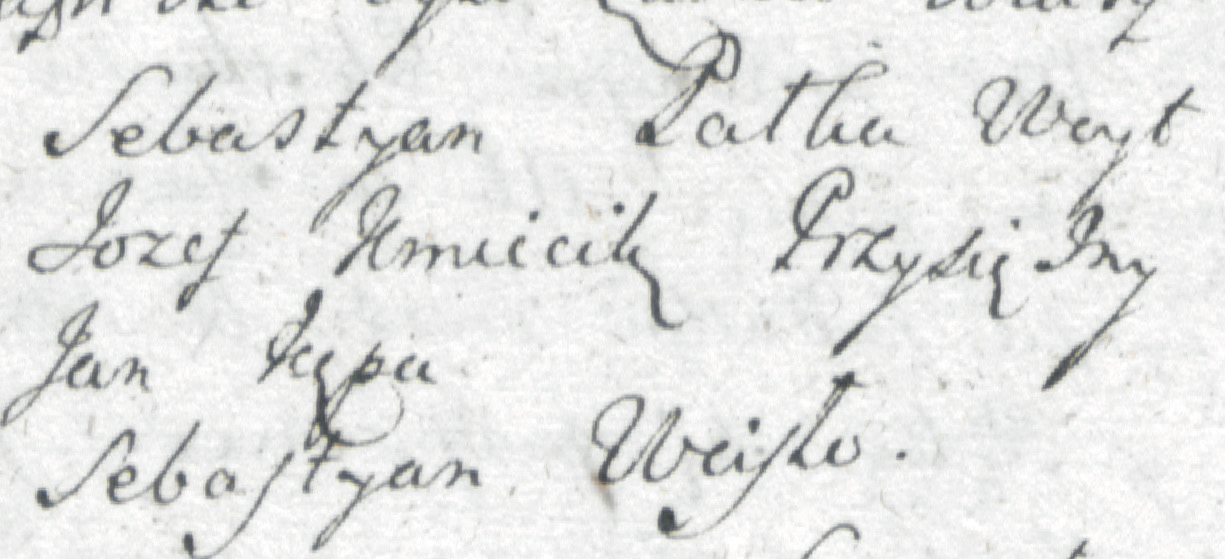 Sebastyan Patka Woyt
Jozef Kmiecik Przysięzny
Jan Kępa
Sebastyan Weisło.